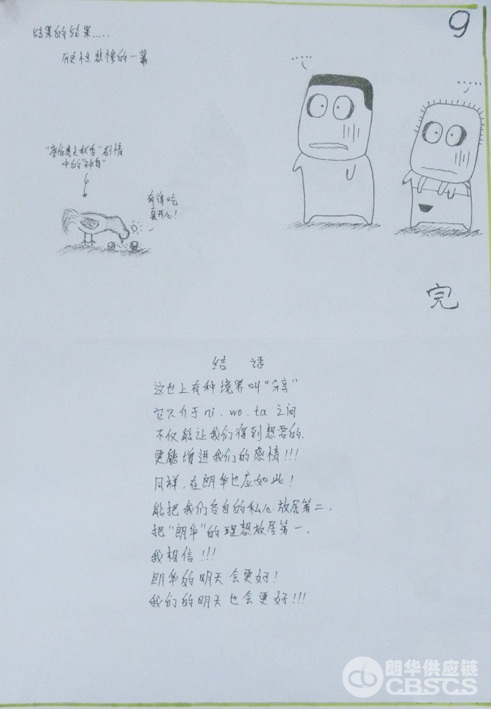 9
结果的结果.....
历史不是悲惨的一幕
有得吃
真开心!
完
结 语
这世上有种境界叫“分享”
它只介于ni.wo.ta 之间
不仅能让我们得到想要的.
更能增进我们的感情!!!
同样,在朗华也应如此!
能把我们各自的私心放居第二.
把“朗华”的理想放居第一.
我相信!!!
朗华的明天会更好!
我们的明天也会更好!!!
朗华供应链
CBSCS